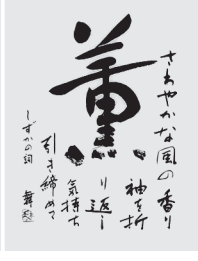 薫
さわやかな風の香り
袖を折
り返し
気持ち
引き締めて
しずかの詞
舞